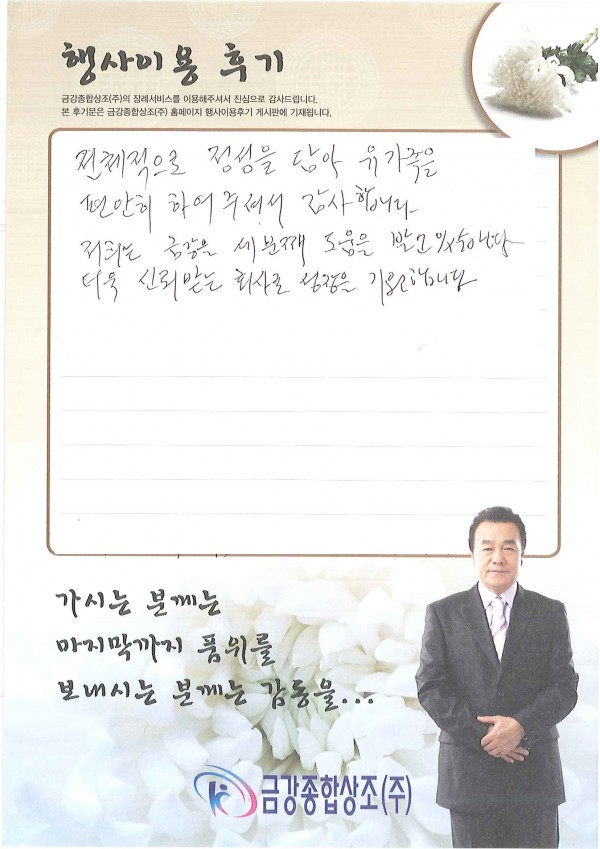 행사이용 후기
금강종합상조(주)의 장례서비스를 이용해주셔서 진심으로 감사드립니다.
본 후기문은 금강종합상조(주) 홈페이지 행사이용후기 게시판에 기재됩니다.
전체적으로 정성을 담아 유가족을
편안히 하여 주셔서 감사합니다
저희는 금강을 세분째 도움을 받고 있습니다
더욱 신뢰받는 회사로 성장을 기원합니다
가시는 분께는
마지막까지 품위를
보내시는 분께는 감동을...
금강종합상조(주)